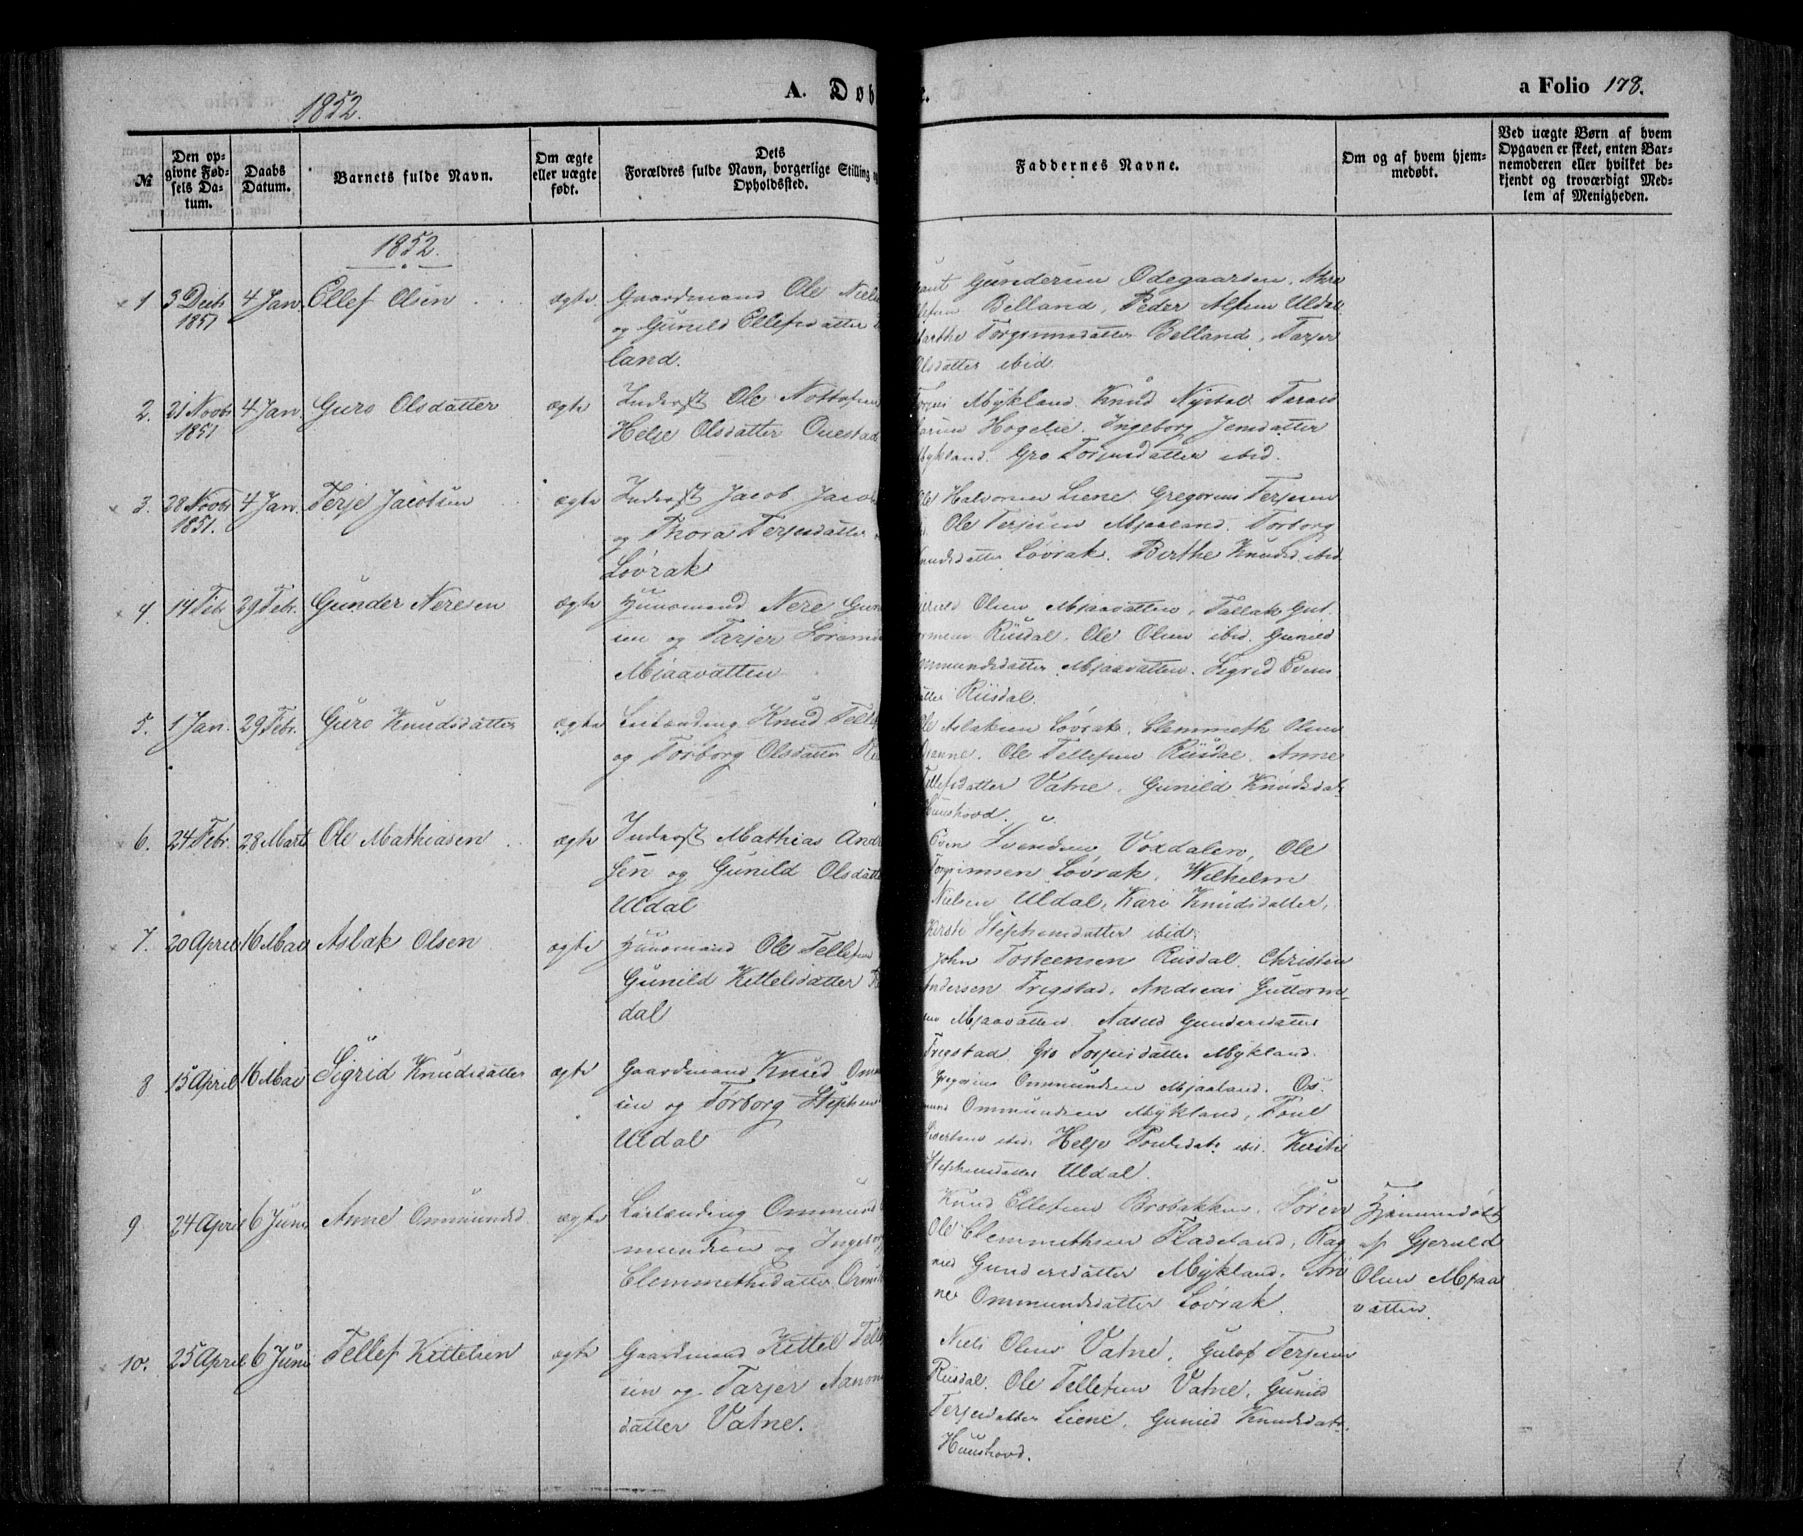 1852.
A. Døb
e.
a Folio 178.
№
Den op-
givne Fød-
sels Da-
tum.
Daabs
Datum.
Barnets fulde Navn.
Om ægte
eller uægte
født.
Dets
Forældres fulde Navn, borgerlige Stilling og
Opholdssted.
Faddernes Navne.
Om og af hvem hjem-
medøbt.
Ved uægte Børn af hvem
Opgaven er skeet, enten Bar-
nemoderen eller hvilket be-
kjendt og troværdigt Med-
lem af Menigheden.
1852.
1 3 Decbr 1851 4 Jan. Ellef Olsen ægte Gaardmand Ole Niels
og Gunild Ellefsdatter
land.
Gundersen Ødegaarden.
Belland, Peder Alfsen Uldal
Torgrimsdatter Belland, Tarjer
Olsdatter ibid.
2. 21 Novbr 1851 4 Jan. Guro Olsdatter ægte Inderst Ole Nottofsen
Helje Olsdatter Ouestad
Mykland. Knud Nystøl. Tarald
Hogelie. Ingeborg Jensdatter
Mykland. Gro Torjusdatter ibid.
3. 28 Novbr 1851. 4 Jan. Terje Jacobsen ægte Inderst Jacob Jacob
og Thora Terjesdatter
Løvrak
Ole Halvorsen Liene, Gregorius Terjesen
Ole Terjesen Mjaaland, Torborg
Knudsdatter Løvrak. Berthe Knudsd. ibid.
4. 14 Febr 29 Febr. Gunder Neresen ægte Huusmand Nere Gun
sen og Tarjer Sørensd
Mjaavatten
Olsen Mjaavatten, Tallak Gut-
tormsen Riisdal. Ole Olsen ibid. Gunild
Ommundsdatter Mjaavatten. Sigrid Evens
datter Riisdal
5. 1 Jan. 29 Febr. Guro Knudsdatter ægte Leilænding Knud Tell
og Torborg Olsdatter
Ole Aslaksen Løvrak, Clemmeth Olsen
Ole Tellefsen Riisdal. Anne
Tellefsdatter Vatne, Gunild Knudsdat.
Huushovd.
6. 24 Febr. 28 Marts Ole Mathiasen ægte Inderst Mathias And
sen og Gunild Olsdatte
Uldal
Even Svendsen Voxdalen, Ole
Torgrimsen Løvrak. Wilhelm
Nielsen Uldal, Kari Knudsdatter,
Kirsti Stephensdatter ibid.
7. 20 April 16 Mai Aslak Olsen ægte Huusmand Ole Tellefsen
Gunild Kittelsdatter
dal
John Tosteensen Riisdal. Christen
Andersen Frigstad. Andreas Guttorm-
sen Mjaavatten. Aasild Gundersdatter
Frigstad. Gro Torjusdatter Mykland.
8 15 April 16 Mai Sigrid Knudsdatter ægte Gaardmand Knud Om
sen og Torborg Stephens
Uldal
Gregorius Ommundsen Mjaaland. Os-
mund Ommundsen Mykland, Poul
Sivertsen ibid. Helje Poulsdat. ibid. Kirsti
Stephensdatter Uldal.
9 24 April 6 Juni Anne Ommundsd. ægte Leilænding Ommund
mundsen og Ingeborg
Clemmethsdatter
Knud Ellefsen Brobakken. Søren
Ole Clemmethsen Fladeland, Rag-
nild Gundersdatter Mykland. An-
ne Ommundsdatter Løvrak.
Hjemmedøbt
af Gjeruld
Olsen Mjaa
vatten.
10. 25 April 6 Juni Tellef Kittelsen ægte Gaardmand Kittel Tell
sen og Tarjer Aanon
datter Vatne.
Niels Olsen Vatne, Gulof Terjesen
Riisdal. Ole Tellefsen Vatne, Gunild
Terjesdatter Liene, Gunild Knudsdat.
Huushovd.